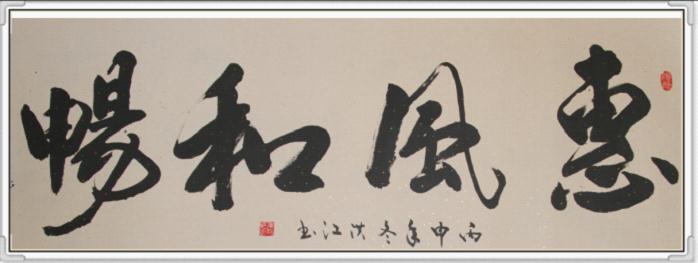 惠風和暢
丙申年冬洪江书